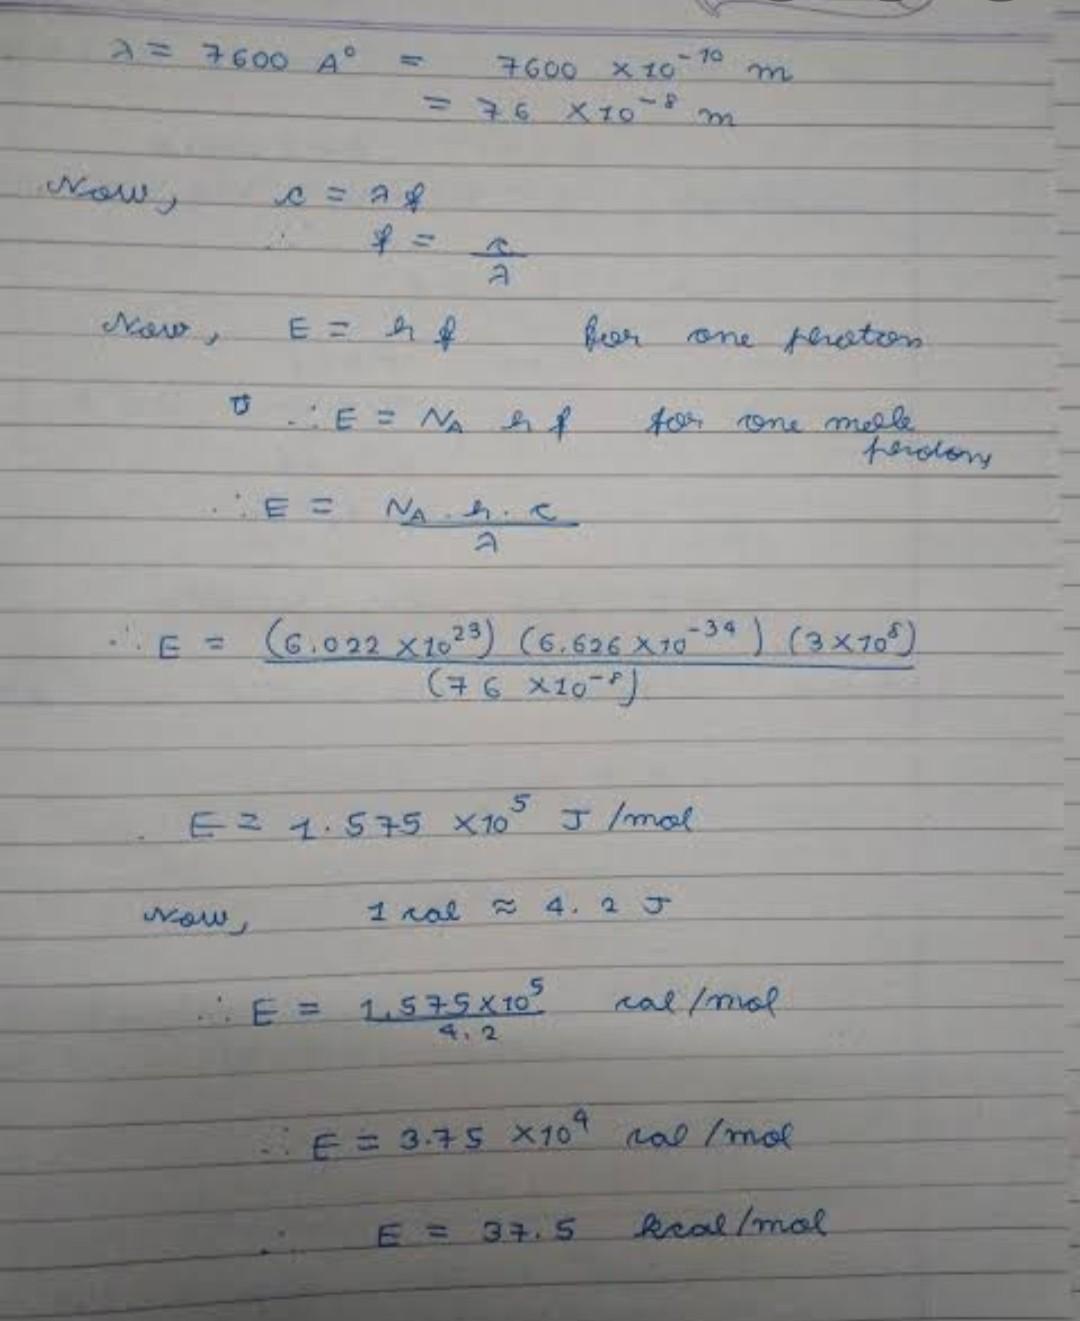 λ = 7600 A° = 7600 × 10⁻¹⁰ m
= 76 × 10⁻⁸ m
Now, c = λ f
∴ f = c/λ
Now, E = h f for one photon
∴ E = N_A h f for one mole
photons
∴ E = N_A . h . c / λ
∴ E = (6.022 × 10²³) (6.626 × 10⁻³⁴) (3 × 10⁸) / (76 × 10⁻⁸)
E = 1.575 × 10⁵ J /mol
Now, 1 cal ≈ 4.2 J
∴ E = 1.575 × 10⁵ / 4.2 cal /mol
∴ E = 3.75 × 10⁴ cal /mol
∴ E = 37.5 kcal/mol